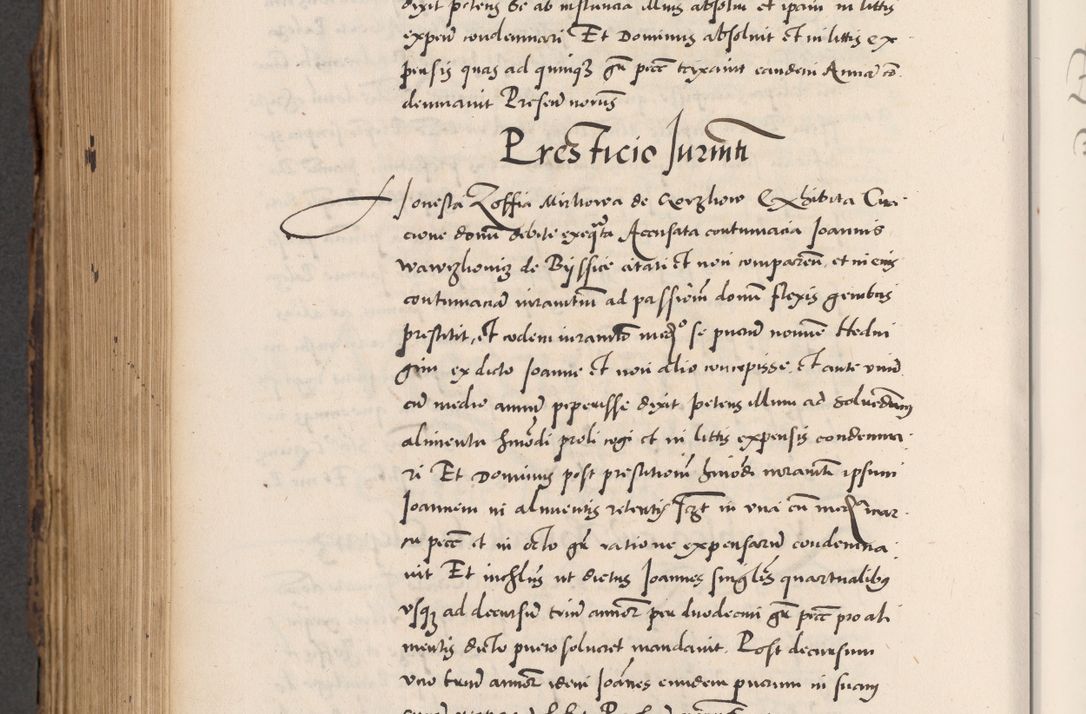 dixit petens se ab instancia illius absolui et ipam in littis
expen condemnari Et Dominus absoluit et in littis ex
pensis quas ad quinqz gr pecc taxauit eandem Anna co
demnauit Presen
Presticio Jurmti
Honesta Zoffia Michowa de Exhibita Cita
cione domi debite exeqta Accusata contumacia Joannis
de citati et non comparen, et in eius
contumacia iuramtum ad passionem domi flexis genibus
prestitit, et eodem iuramto medio se puerum nomine Hedui
gim ex dicto Joanne et non alio concepisse, et ante vnum
cu medio annum peperisse dixit petens illum ad soluendum
alimenta hmodi proli cogi et in littis expensis condemna
ri Et Dominus post prestitionem hmodi iuramti ipsum
Joannem in alimentis retentis in vna cum media mar
ca pecc et in octo gr ratione expensarum condemna
uit Et ut dictus Joannes singlis quartualibus
vsqz ad decursum trium annorum per duodecim gr pecc pro ali
mentis dicto puero solueret mandauit. Post decursum
vero trium annorum idem Joannes eundem puerum in suam